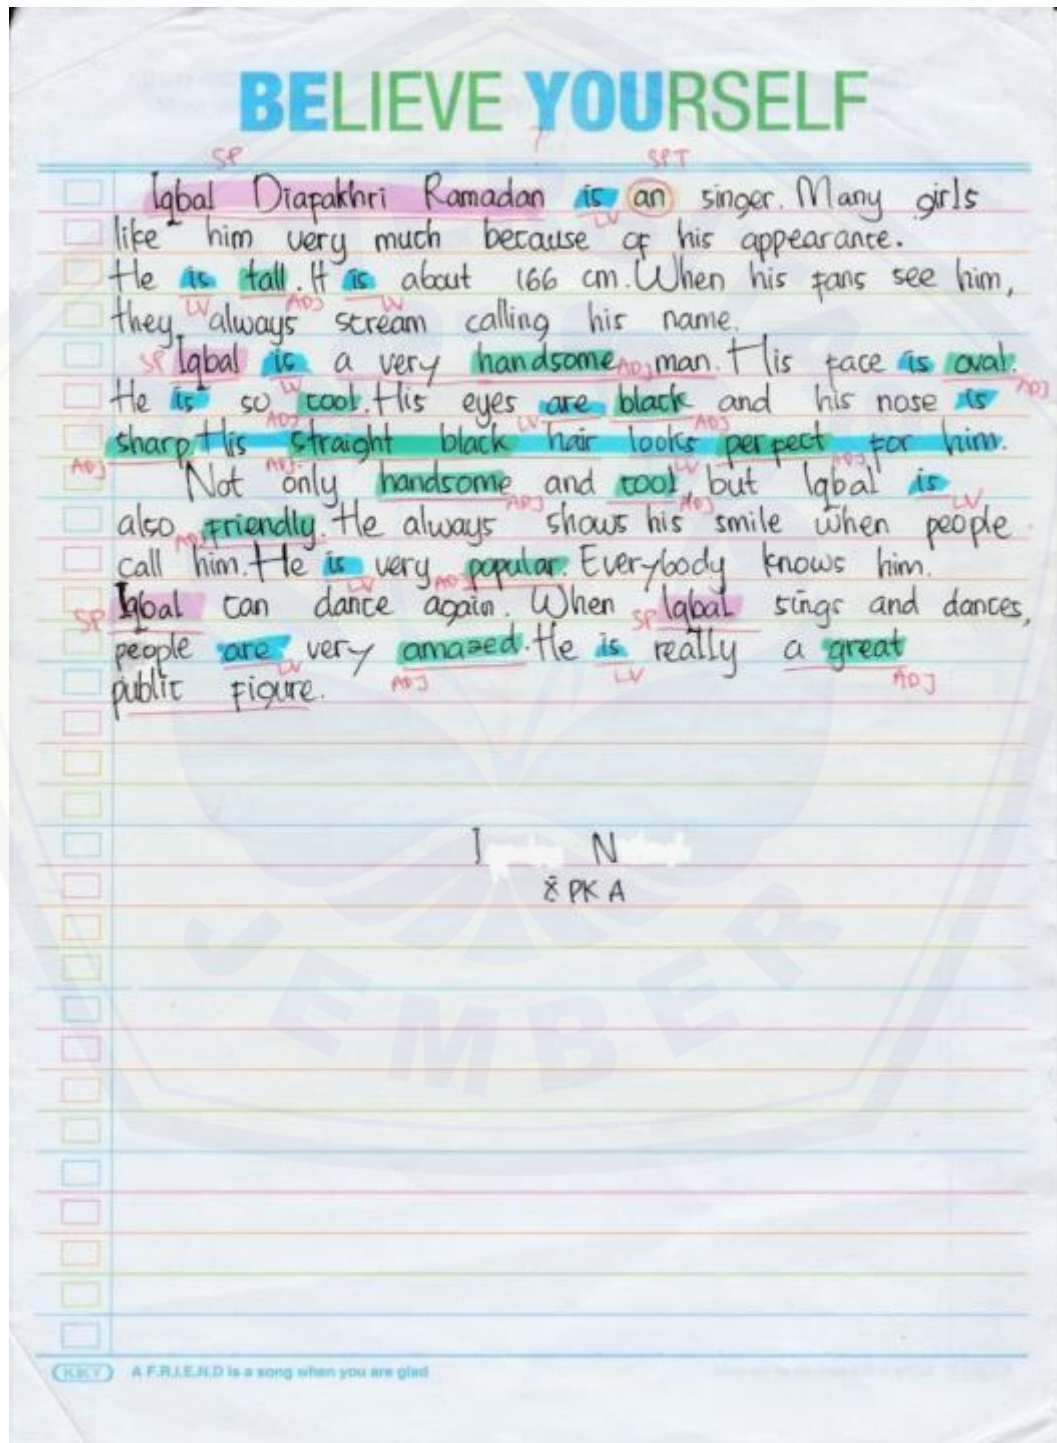 BELIEVE YOURSELF
?
SP SPT
Iqbal Diafakhri Ramadan is an singer. Many girls
LV
like him very much because of his appearance.
He is tall. It is about 166 cm. When his fans see him,
LV ADJ LV
they always scream calling his name.
SP Iqbal is a very handsome ADJ man. His face is oval.
LV ADJ
He is so cool. His eyes are black and his nose is
ADJ LV ADJ
sharp. His straight black hair looks perfect for him.
ADJ ADJ LV ADJ
Not only handsome and cool, but Iqbal is
ADJ ADJ LV
also ADJ friendly. He always shows his smile when people
call him. He is very popular. Everybody knows him.
LV ADJ
SP Iqbal can dance again. When SP Iqbal sings and dances,
people are very amazed. He is really a great
LV ADJ LV ADJ
public figure.
I N
8 PK A
JEMBER
KKY A F.R.I.E.N.D is a song when you are glad